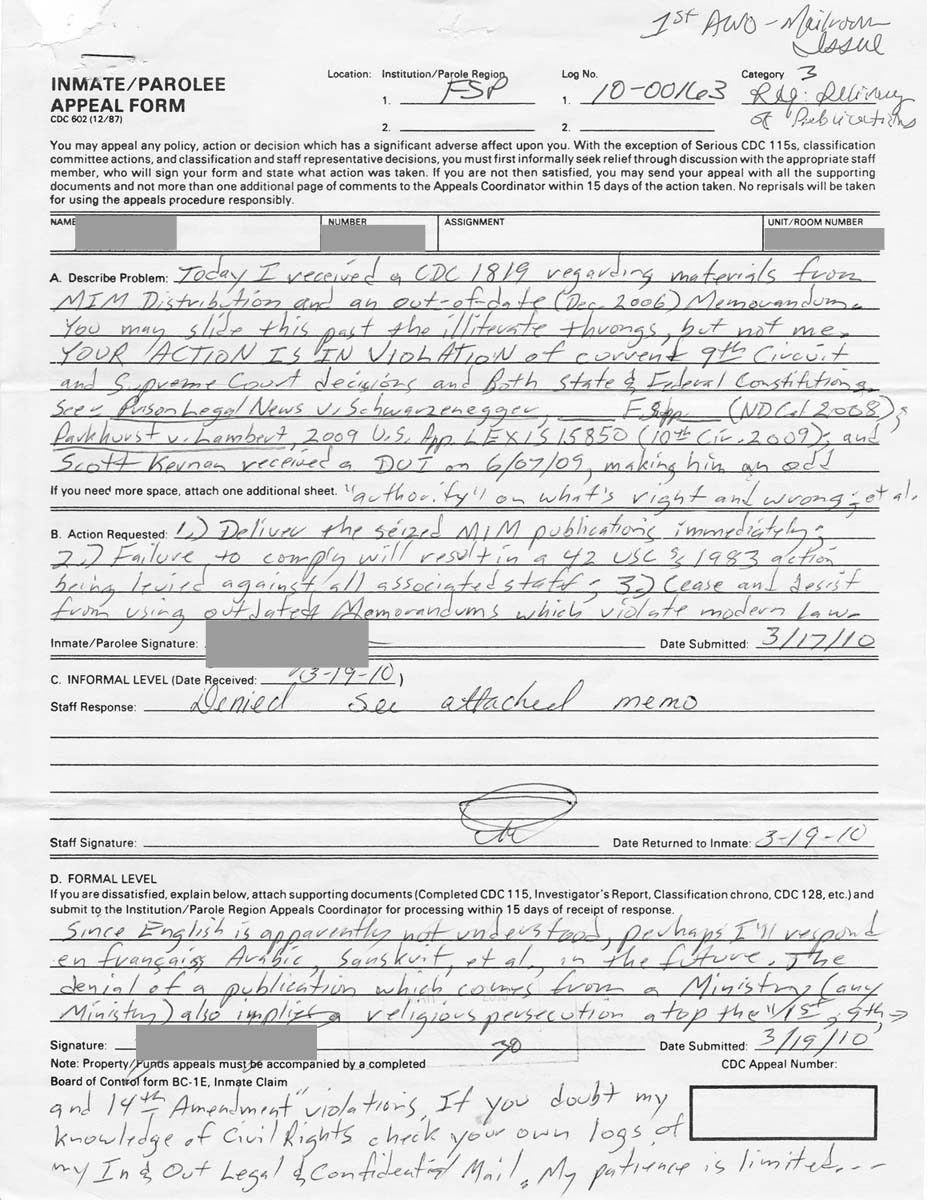 1st AWO - Mailroom
Issue
INMATE/PAROLEE
APPEAL FORM
CDC 602 (12/87)
Location: Institution/Parole Region Log No. Category 3
1. FSP 1. 10-00163 Rdg: Delivery
2. 2. of Publications
You may appeal any policy, action or decision which has a significant adverse affect upon you. With the exception of Serious CDC 115s, classification
committee actions, and classification and staff representative decisions, you must first informally seek relief through discussion with the appropriate staff
member, who will sign your form and state what action was taken. If you are not then satisfied, you may send your appeal with all the supporting
documents and not more than one additional page of comments to the Appeals Coordinator within 15 days of the action taken. No reprisals will be taken
for using the appeals procedure responsibly.
NAME NUMBER ASSIGNMENT UNIT/ROOM NUMBER
A. Describe Problem: Today I received a CDC 1819 regarding materials from
MIM Distribution and an out-of-date (Dec. 2006) Memorandum.
You may slide this past the illiterate throngs, but not me.
YOUR ACTION IS IN VIOLATION of current 9th Circuit
and Supreme Court decisions and Both State & Federal Constitutions.
See: Prison Legal News v. Schwarzenegger, ___ F.Supp. (ND Cal 2008);
Parkhurst v. Lambert, 2009 U.S. App. LEXIS 15850 (10th Cir. 2009); and
Scott Kernan received a DUI on 6/07/09, making him an odd
If you need more space, attach one additional sheet. "authority" on what's right and wrong; et al.
B. Action Requested: 1.) Deliver the seized MIM publications immediately;
2.) Failure to comply will result in a 42 USC § 1983 action
being levied against all associated staff; 3.) Cease and desist
from using outdated Memorandums which violate modern law.
Inmate/Parolee Signature: Date Submitted: 3/17/10
C. INFORMAL LEVEL (Date Received: 3-19-10)
Staff Response: Denied see attached memo
Staff Signature: Date Returned to Inmate: 3-19-10
D. FORMAL LEVEL
If you are dissatisfied, explain below, attach supporting documents (Completed CDC 115, Investigator's Report, Classification chrono, CDC 128, etc.) and
submit to the Institution/Parole Region Appeals Coordinator for processing within 15 days of receipt of response.
Since English is apparently not understood, perhaps I'll respond
en français, Arabic, Sanskrit, et al., in the future. The
denial of a publication which comes from a Ministry (any
Ministry) also implies a religious persecution atop the "1st, 9th,
Signature: 30 Date Submitted: 3/19/10
Note: Property/Funds appeals must be accompanied by a completed CDC Appeal Number:
Board of Control form BC-1E, Inmate Claim
and 14th Amendment" violations. If you doubt my
knowledge of Civil Rights check your own logs of
my In & Out Legal & Confidential Mail. My patience is limited...